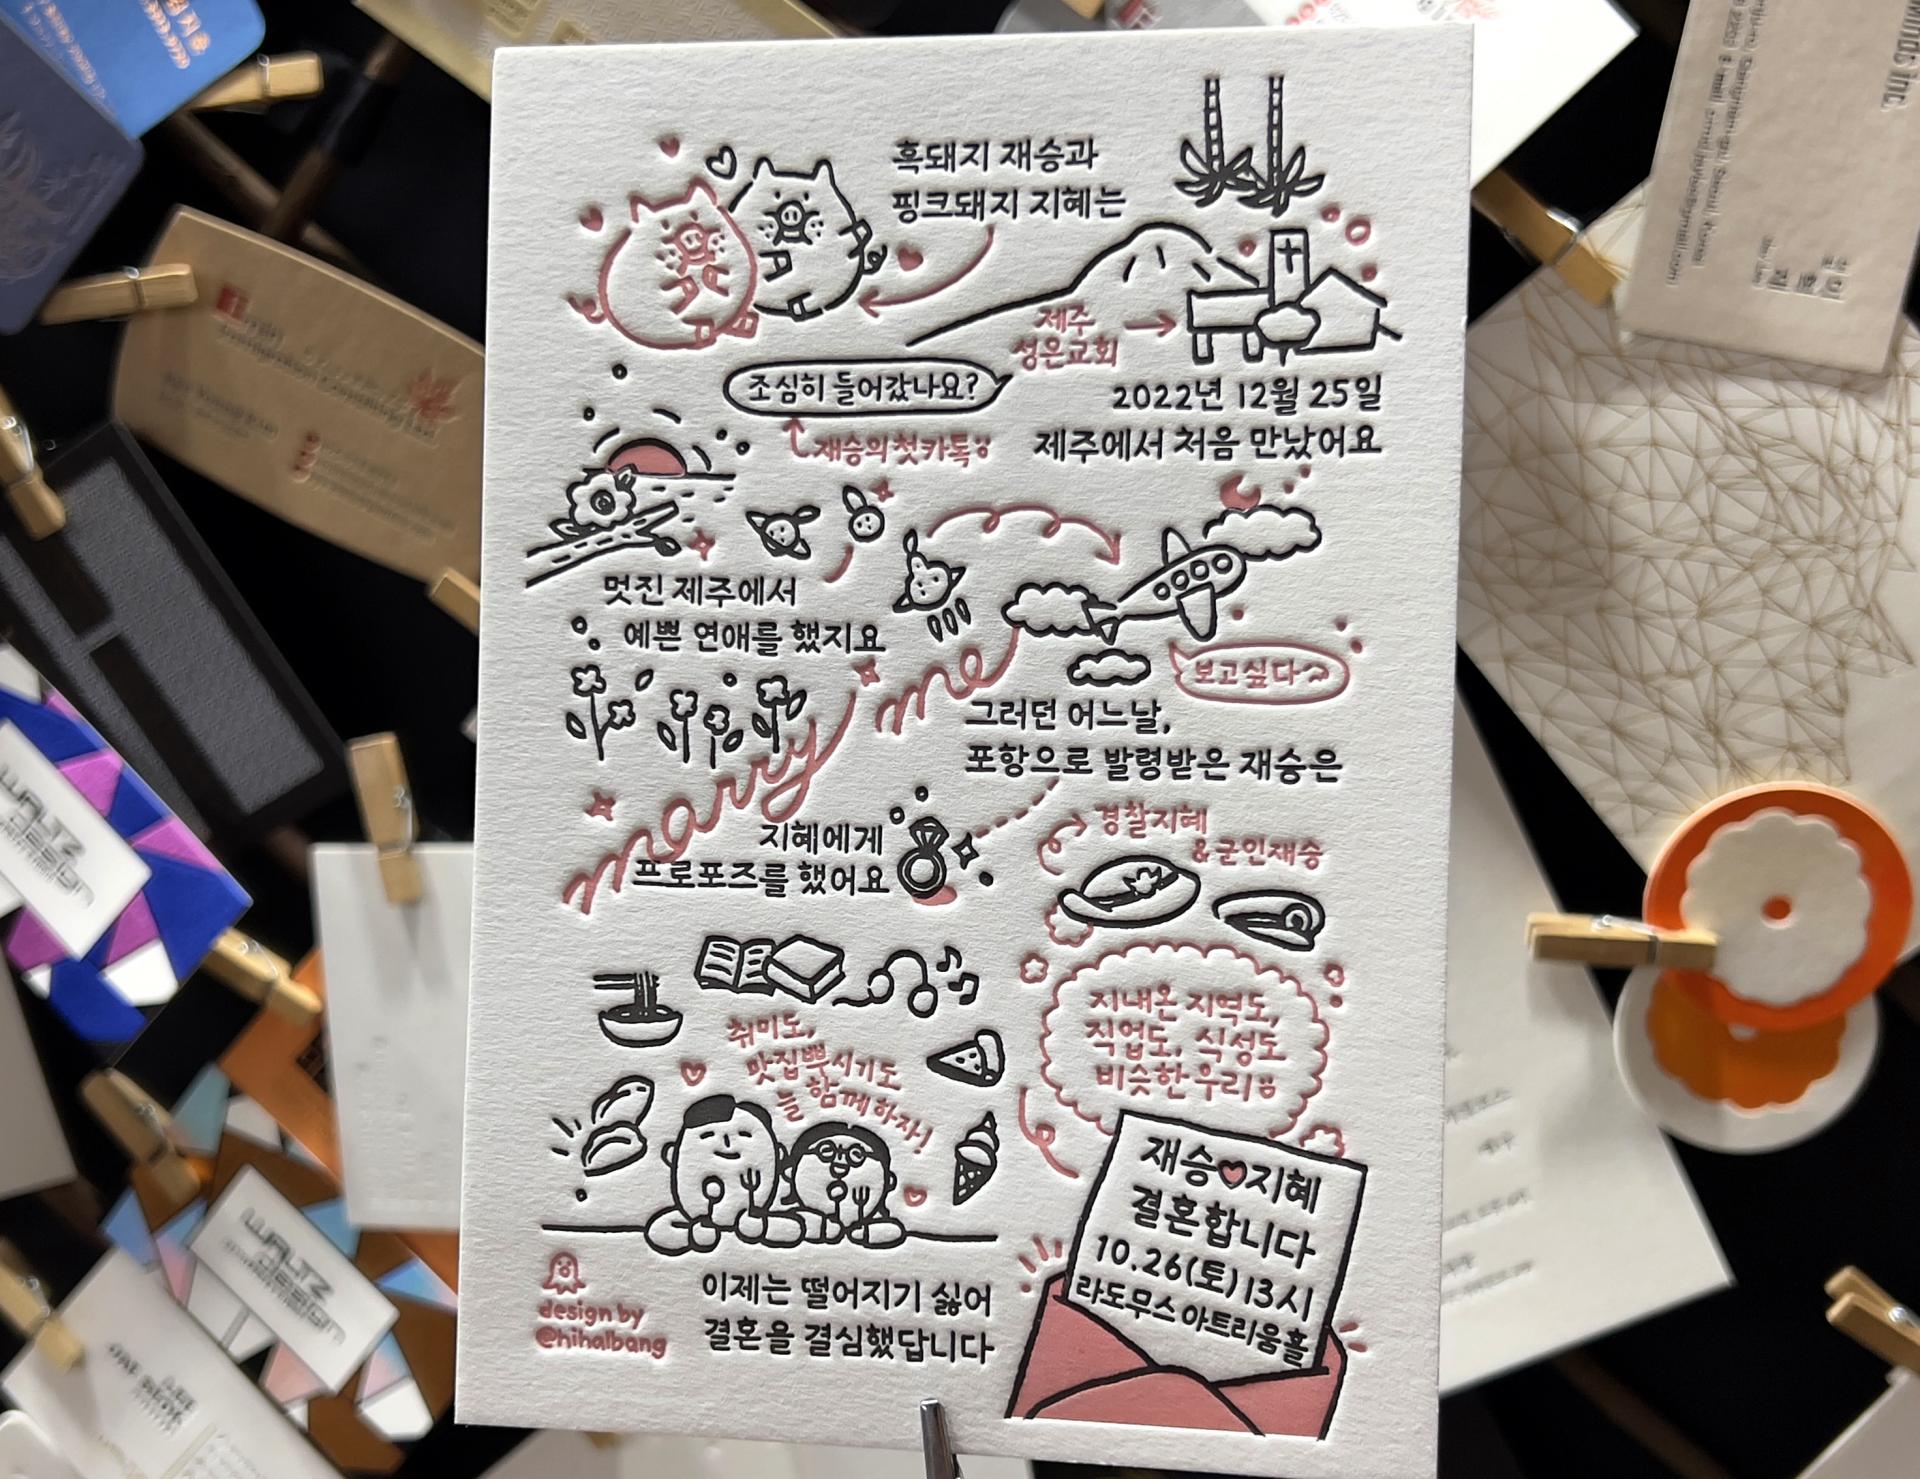 흑돼지 재승과
핑크돼지 지혜는
제주
성은교회
조심히 들어갔나요?
재승의 첫카톡
2022년 12월 25일
제주에서 처음 만났어요
멋진 제주에서
예쁜 연애를 했지요
보고싶다~
그러던 어느날,
포항으로 발령받은 재승은
marry me
지혜에게
프로포즈를 했어요
경찰지혜
&군인재승
지내온 지역도,
직업도, 식성도
비슷한 우리
취미도,
맛집뿌시기도
늘 함께하자!
이제는 떨어지기 싫어
결혼을 결심했답니다
재승♥지혜
결혼합니다
10.26(토) 13시
라도무스 아트리움홀
design by
@hihalbang
WALTZ
DESIGN
WALTZ
DESIGN